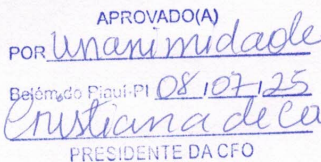 APROVADO(A)
POR Unanimidade
Belém do Piauí-PI 08/07/25
Cristiana de Ca
PRESIDENTE DA CFO